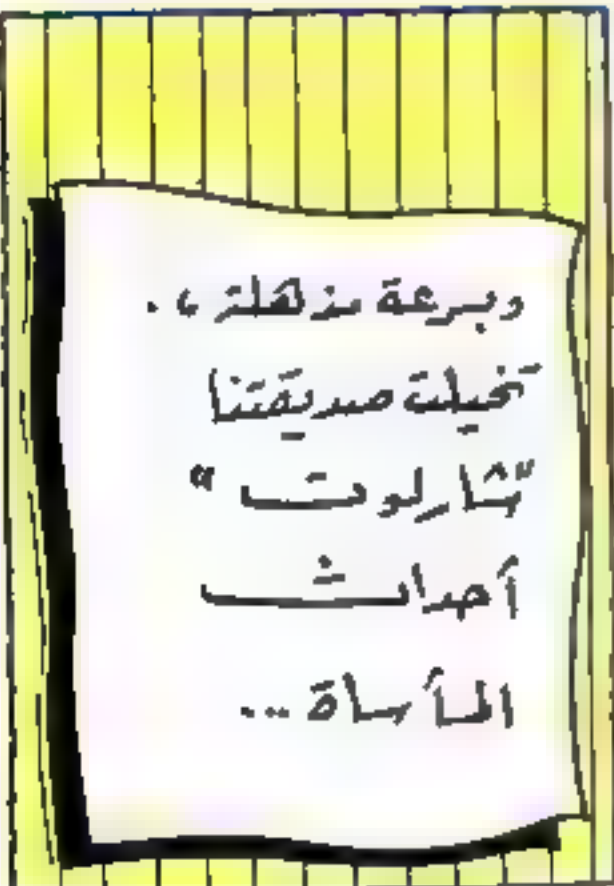 وبسرعة مذهلة ،.
تخيلت صديقتنا
"شارلوت"
أحداث
المأساة...